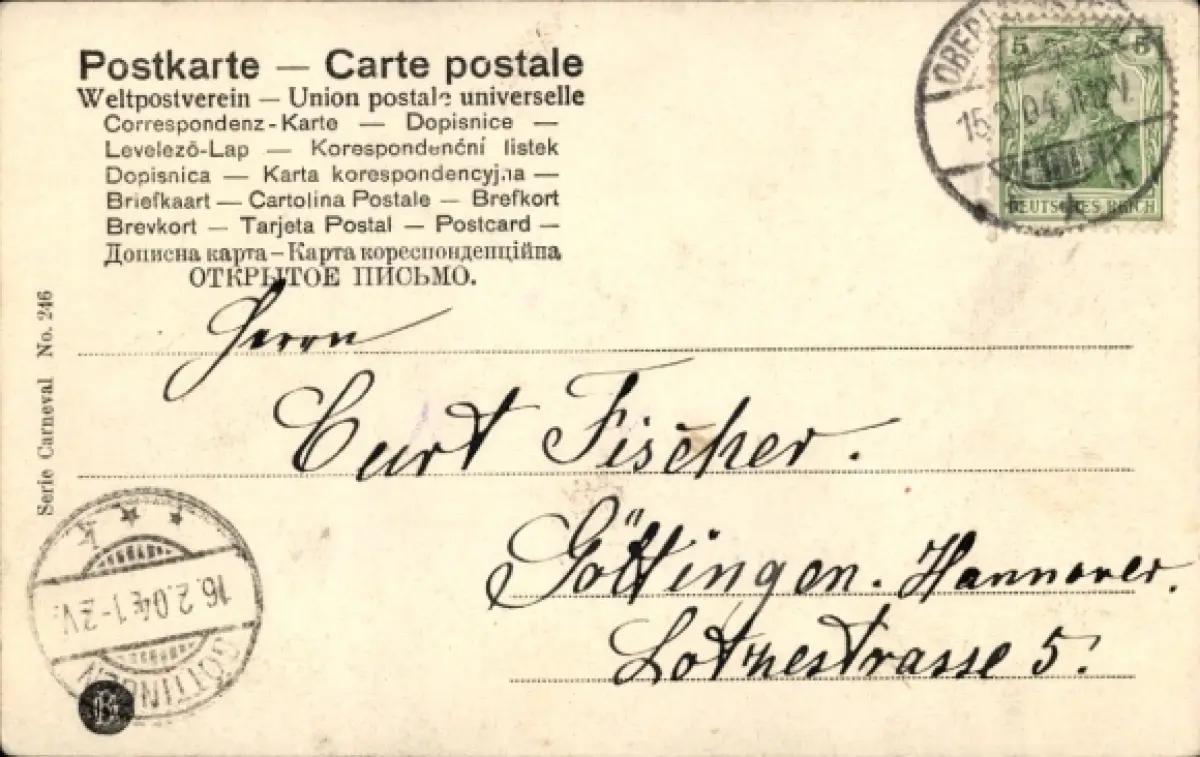 Postkarte — Carte postale
Weltpostverein — Union postale universelle
Correspondenz-Karte — Dopisnice —
Levelező-Lap — Korespondenční listek
Dopisnica — Karta korespondencyjna —
Briefkaart — Cartolina Postale — Brefkort
Brevkort — Tarjeta Postal — Postcard —
Дописна карта — Карта кореспонденційна
ОТКРЫТОЕ ПИСЬМО.
5 5
DEUTSCHES REICH
15.2.04
Serie Carneval No. 246
Herrn
Curt Fischer.
Göttingen. Hannover.
Lotzestrasse 5.
GÖTTINGEN
16.2.04.1-2V.